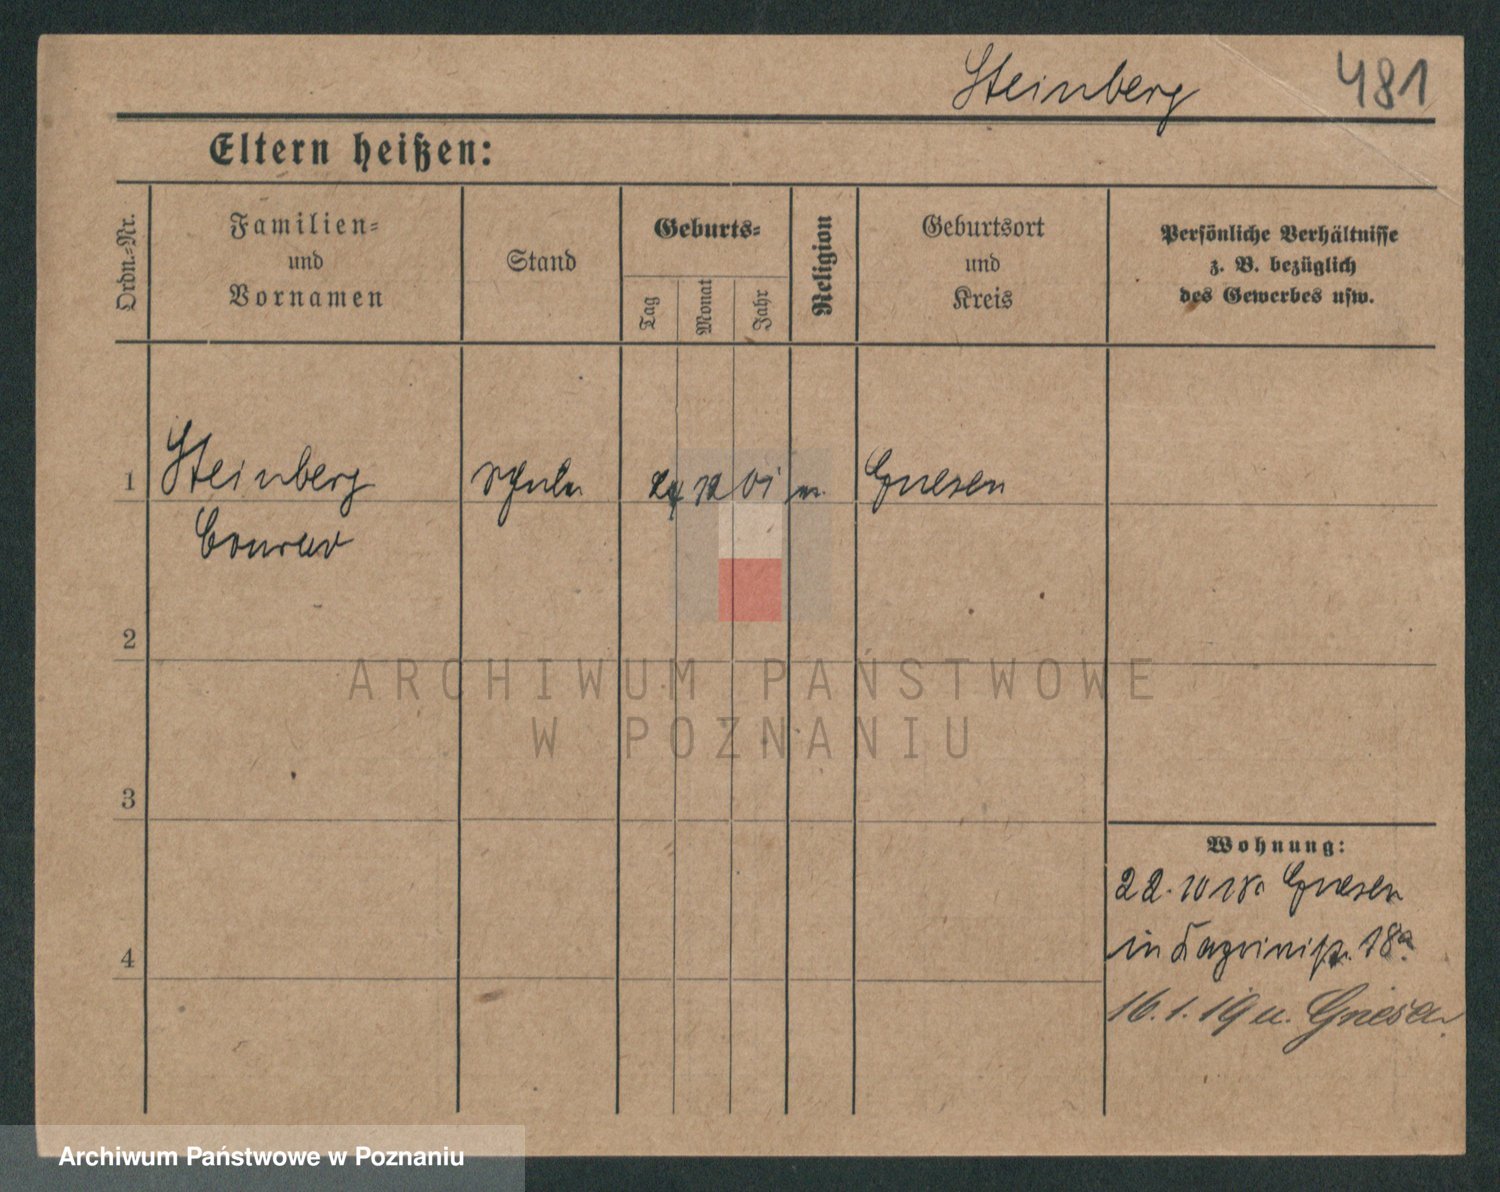 Steinberg 481
Eltern heißen:
Ordn.-Nr.
Familien- und Vornamen
Stand
Geburts-
Tag
Monat
Jahr
Religion
Geburtsort und Kreis
Persönliche Verhältnisse
z. B. bezüglich
des Gewerbes usw.
1 Steinberg 12 01 Gnesen
Conrad
2
ARCHIWUM PAŃSTWOWE
W POZNANIU
3
Wohnung:
22. 10 18 Gnesen
in 18a
4
16. 1. 19 u. Gnesen
Archiwum Państwowe w Poznaniu